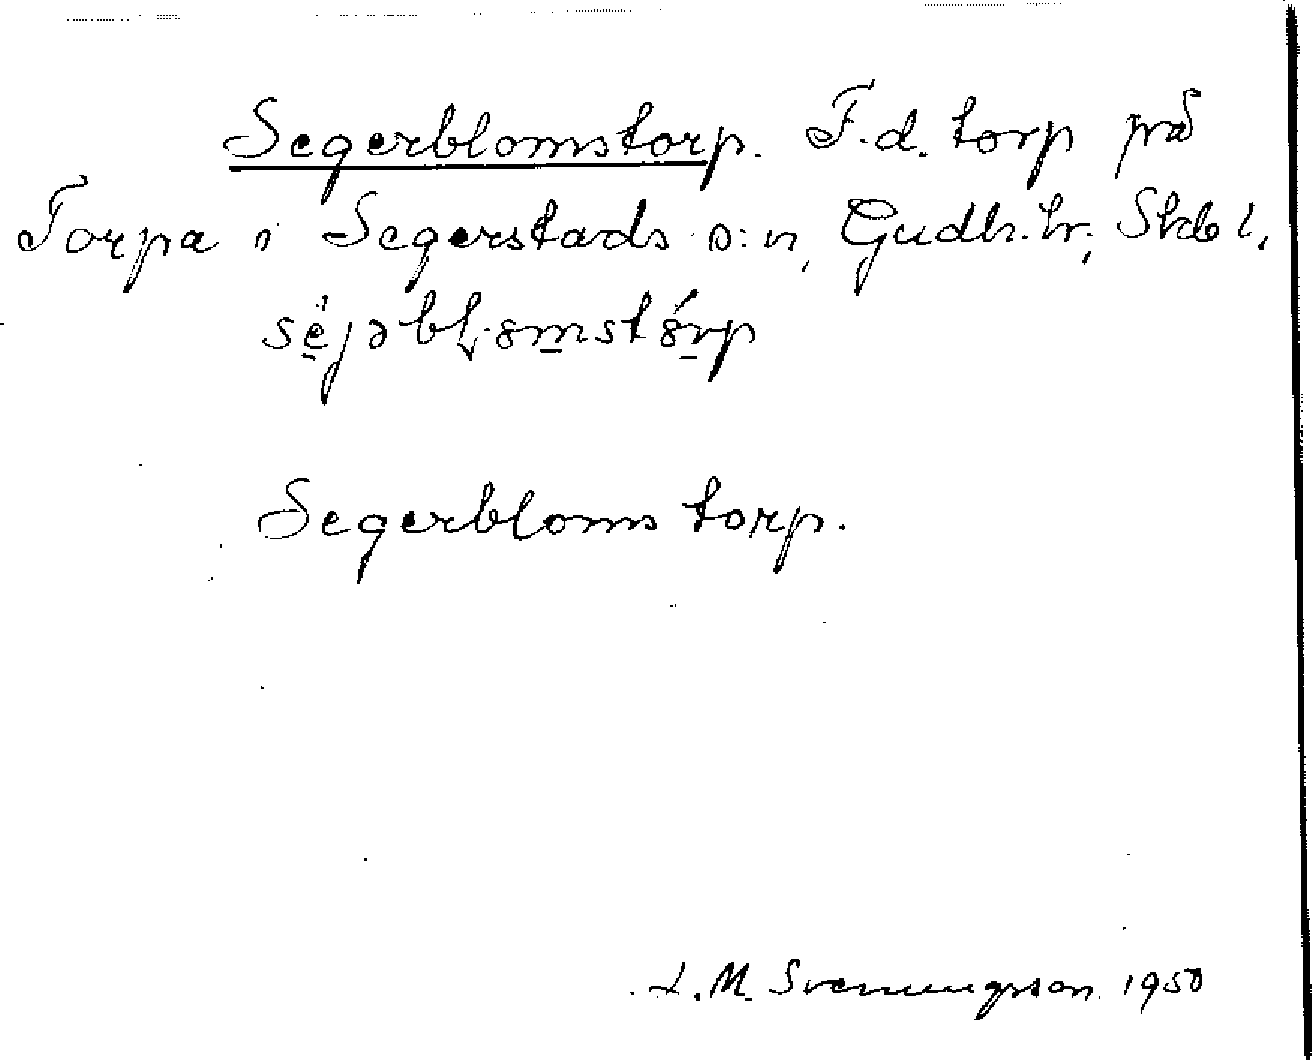 Segerblomstorp. F.d. torp på
Torpa i Segerstads s:n, Gudh. hr, Skbl.
Segerbloms torp.
L. M. Svenungsson 1950